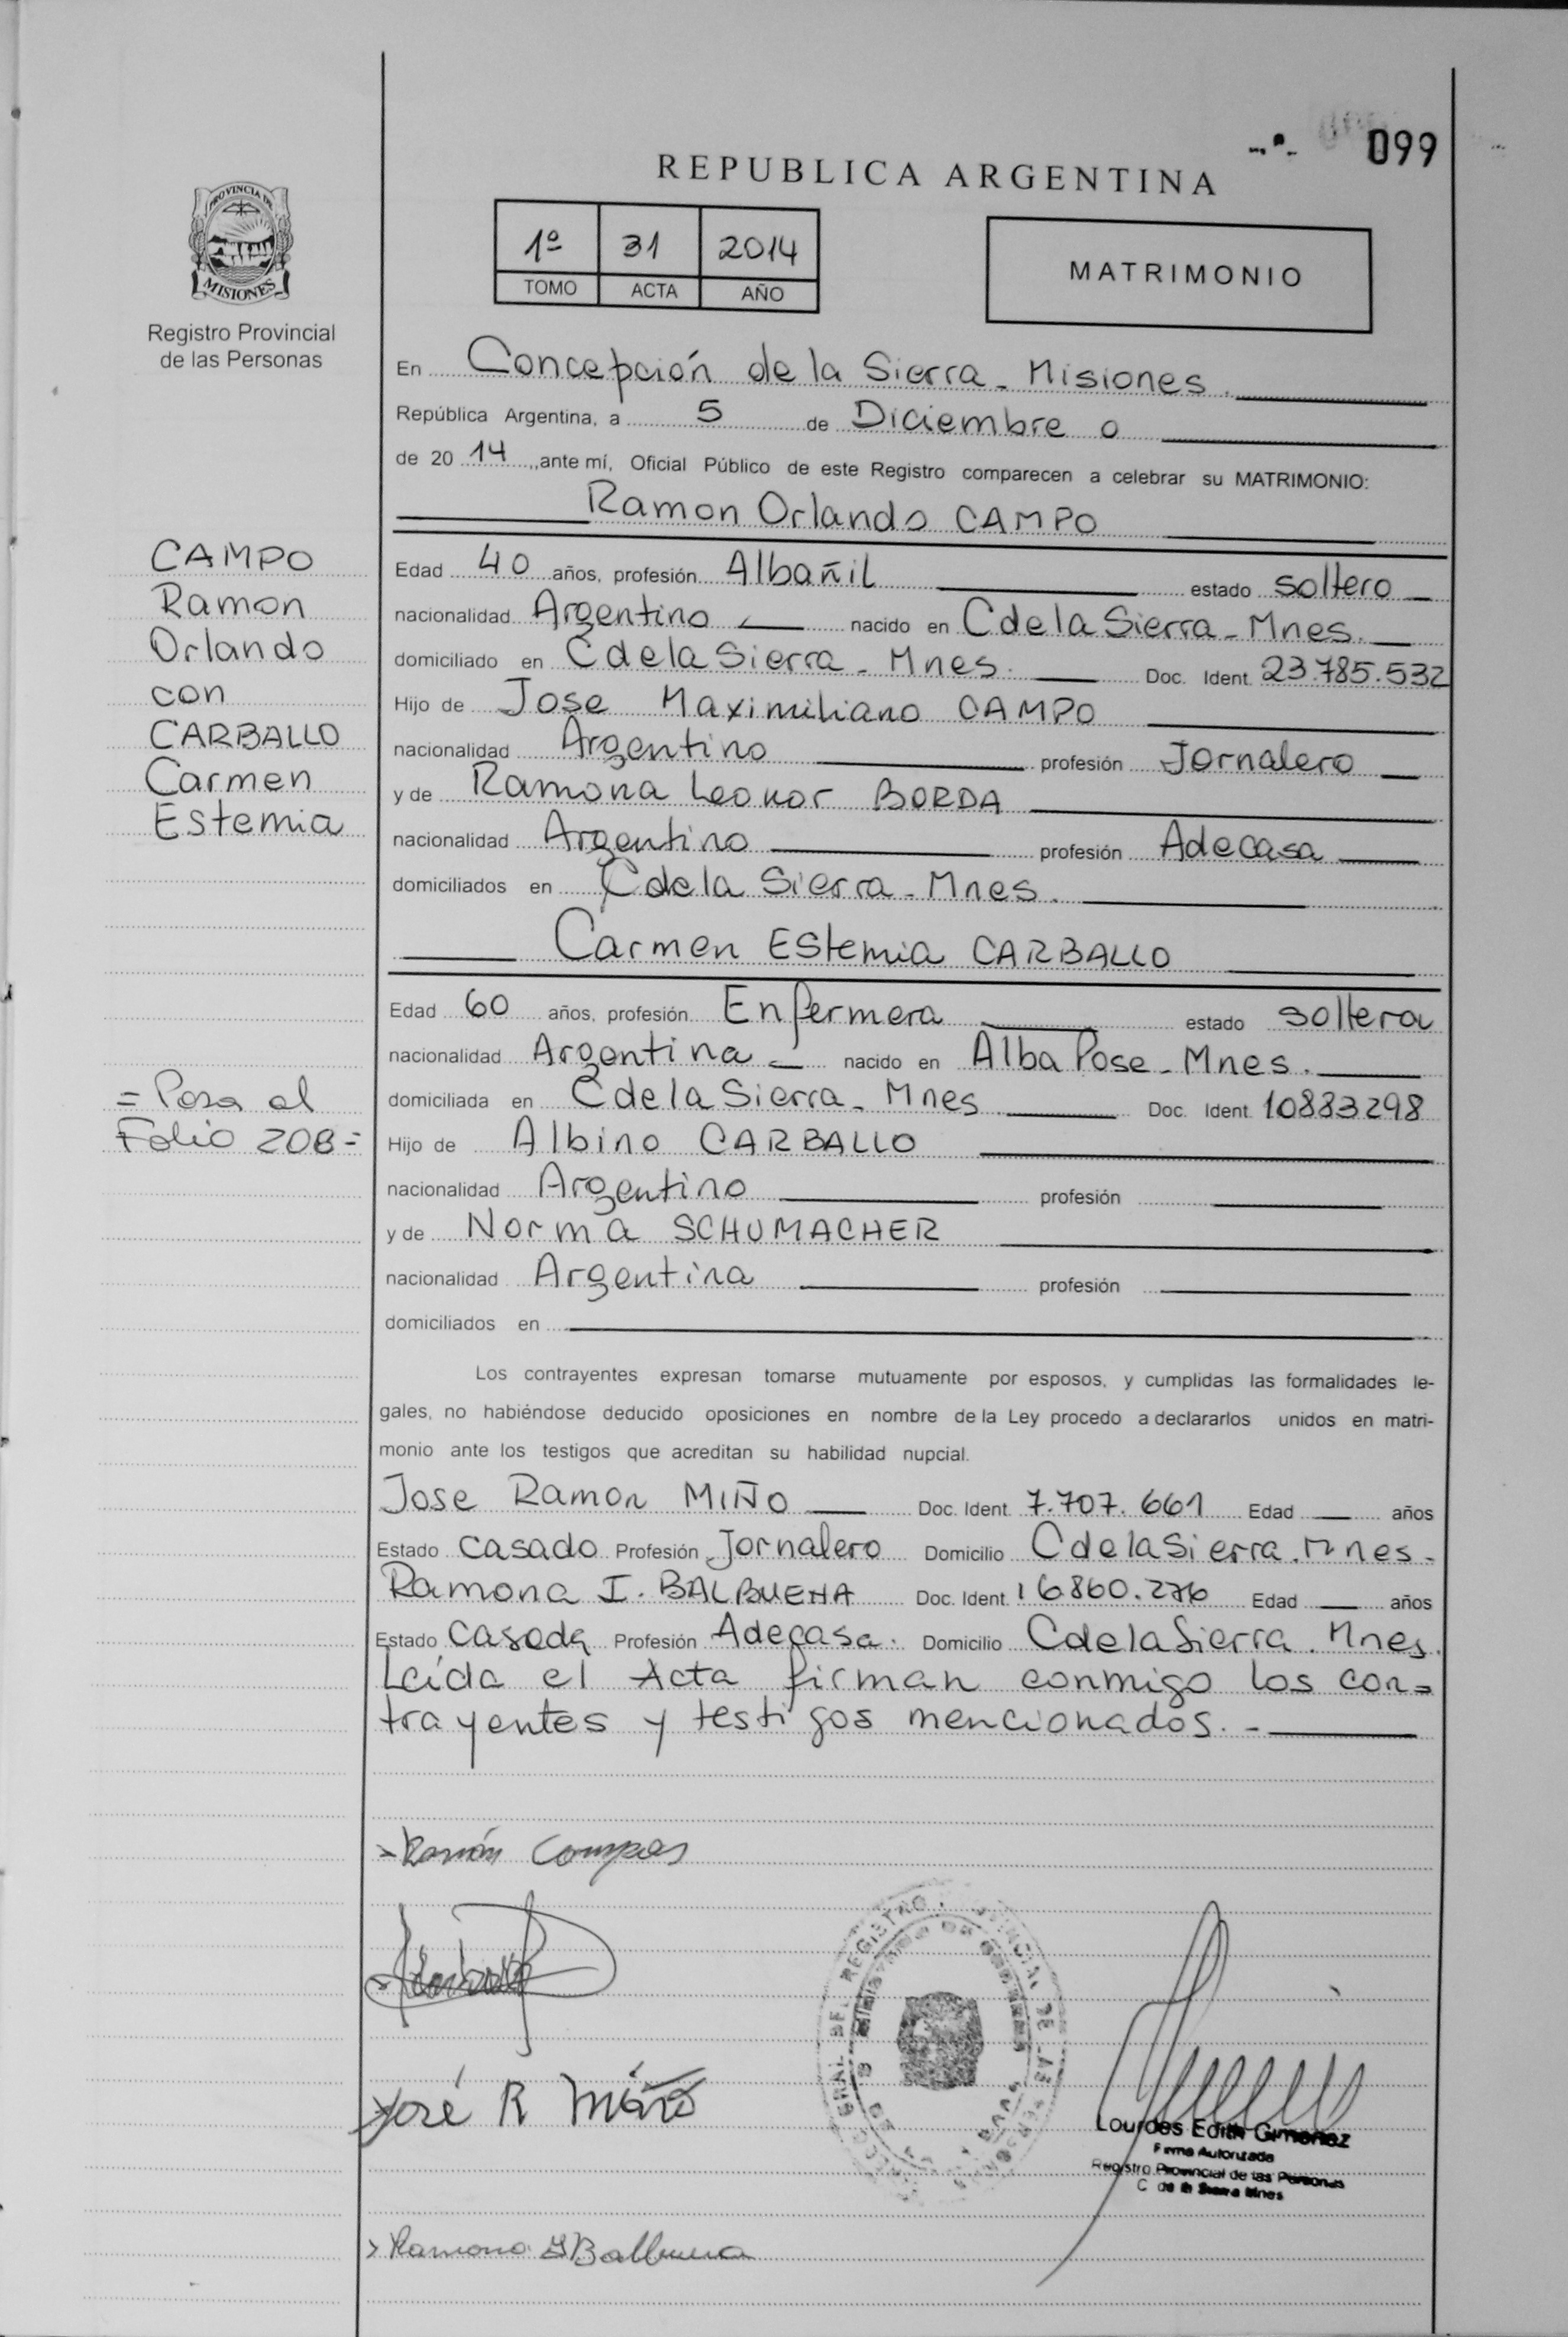 099
REPUBLICA ARGENTINA
PROVINCIA DE
MISIONES
Registro Provincial
de las Personas
1º 31 2014
TOMO ACTA AÑO
MATRIMONIO
En Concepción de la Sierra - Misiones.
República Argentina, a 5 de Diciembre o
de 20 14, ante mí, Oficial Público de este Registro comparecen a celebrar su MATRIMONIO:
Ramon Orlando CAMPO
CAMPO
Ramon
Orlando
con
CARBALLO
Carmen
Estemia
Edad 40 años, profesión Albañil estado soltero
nacionalidad Argentino nacido en C de la Sierra - Mnes.
domiciliado en C de la Sierra - Mnes. Doc. Ident. 23.785.532
Hijo de Jose Maximiliano CAMPO
nacionalidad Argentino profesión Jornalero
y de Ramona Leonor BORDA
nacionalidad Argentino profesión Adecasa
domiciliados en C de la Sierra - Mnes.
Carmen Estemia CARBALLO
Edad 60 años, profesión Enfermera estado soltera
nacionalidad Argentina nacido en Alba Pose - Mnes.
= Pasa al
Folio 208 =
domiciliada en C de la Sierra - Mnes Doc. Ident. 10883298
Hijo de Albino CARBALLO
nacionalidad Argentino profesión
y de Norma SCHUMACHER
nacionalidad Argentina profesión
domiciliados en
Los contrayentes expresan tomarse mutuamente por esposos, y cumplidas las formalidades le-
gales, no habiéndose deducido oposiciones en nombre de la Ley procedo a declararlos unidos en matri-
monio ante los testigos que acreditan su habilidad nupcial.
Jose Ramon MIÑO Doc. Ident. 7.707.661 Edad años
Estado casado Profesión Jornalero Domicilio C de la Sierra. Mnes.
Ramona I. BALBUENA Doc. Ident. 16860.276 Edad años
Estado Casada Profesión Adecasa. Domicilio C de la Sierra. Mnes.
Leída el Acta firman conmigo los con=
trayentes y testigos mencionados. -
Ramón Campos
José R Miño
Lourdes Edith Gimenez
Firma Autorizada
Registro Provincial de las Personas
C de la Sierra Mnes
Ramona I Balbuena